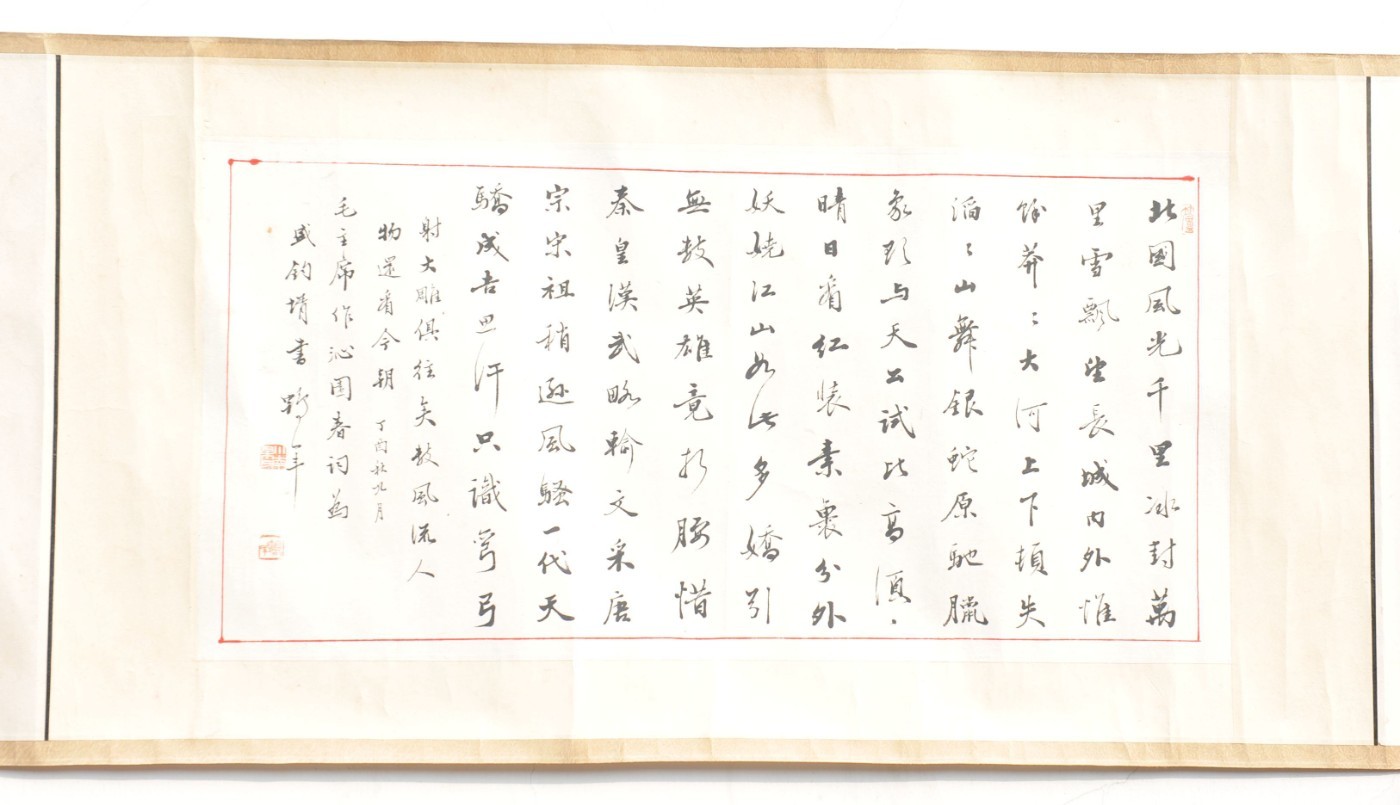 北國風光千里冰封萬
里雪飄望長城內外惟
餘莽〻大河上下頓失
滔〻山舞銀蛇原馳臘
象欲与天公試比高須
晴日看红裝素裹分外
妖嬈江山如此多嬌引
無數英雄竟折腰惜
秦皇漢武略輸文采唐
宗宋祖稍遜風騷一代天
驕成吉思汗只識彎弓
射大雕俱往矣數風流人
物還看今朝 丁酉秋九月
毛主席作沁園春詞為
盛鈞壻書